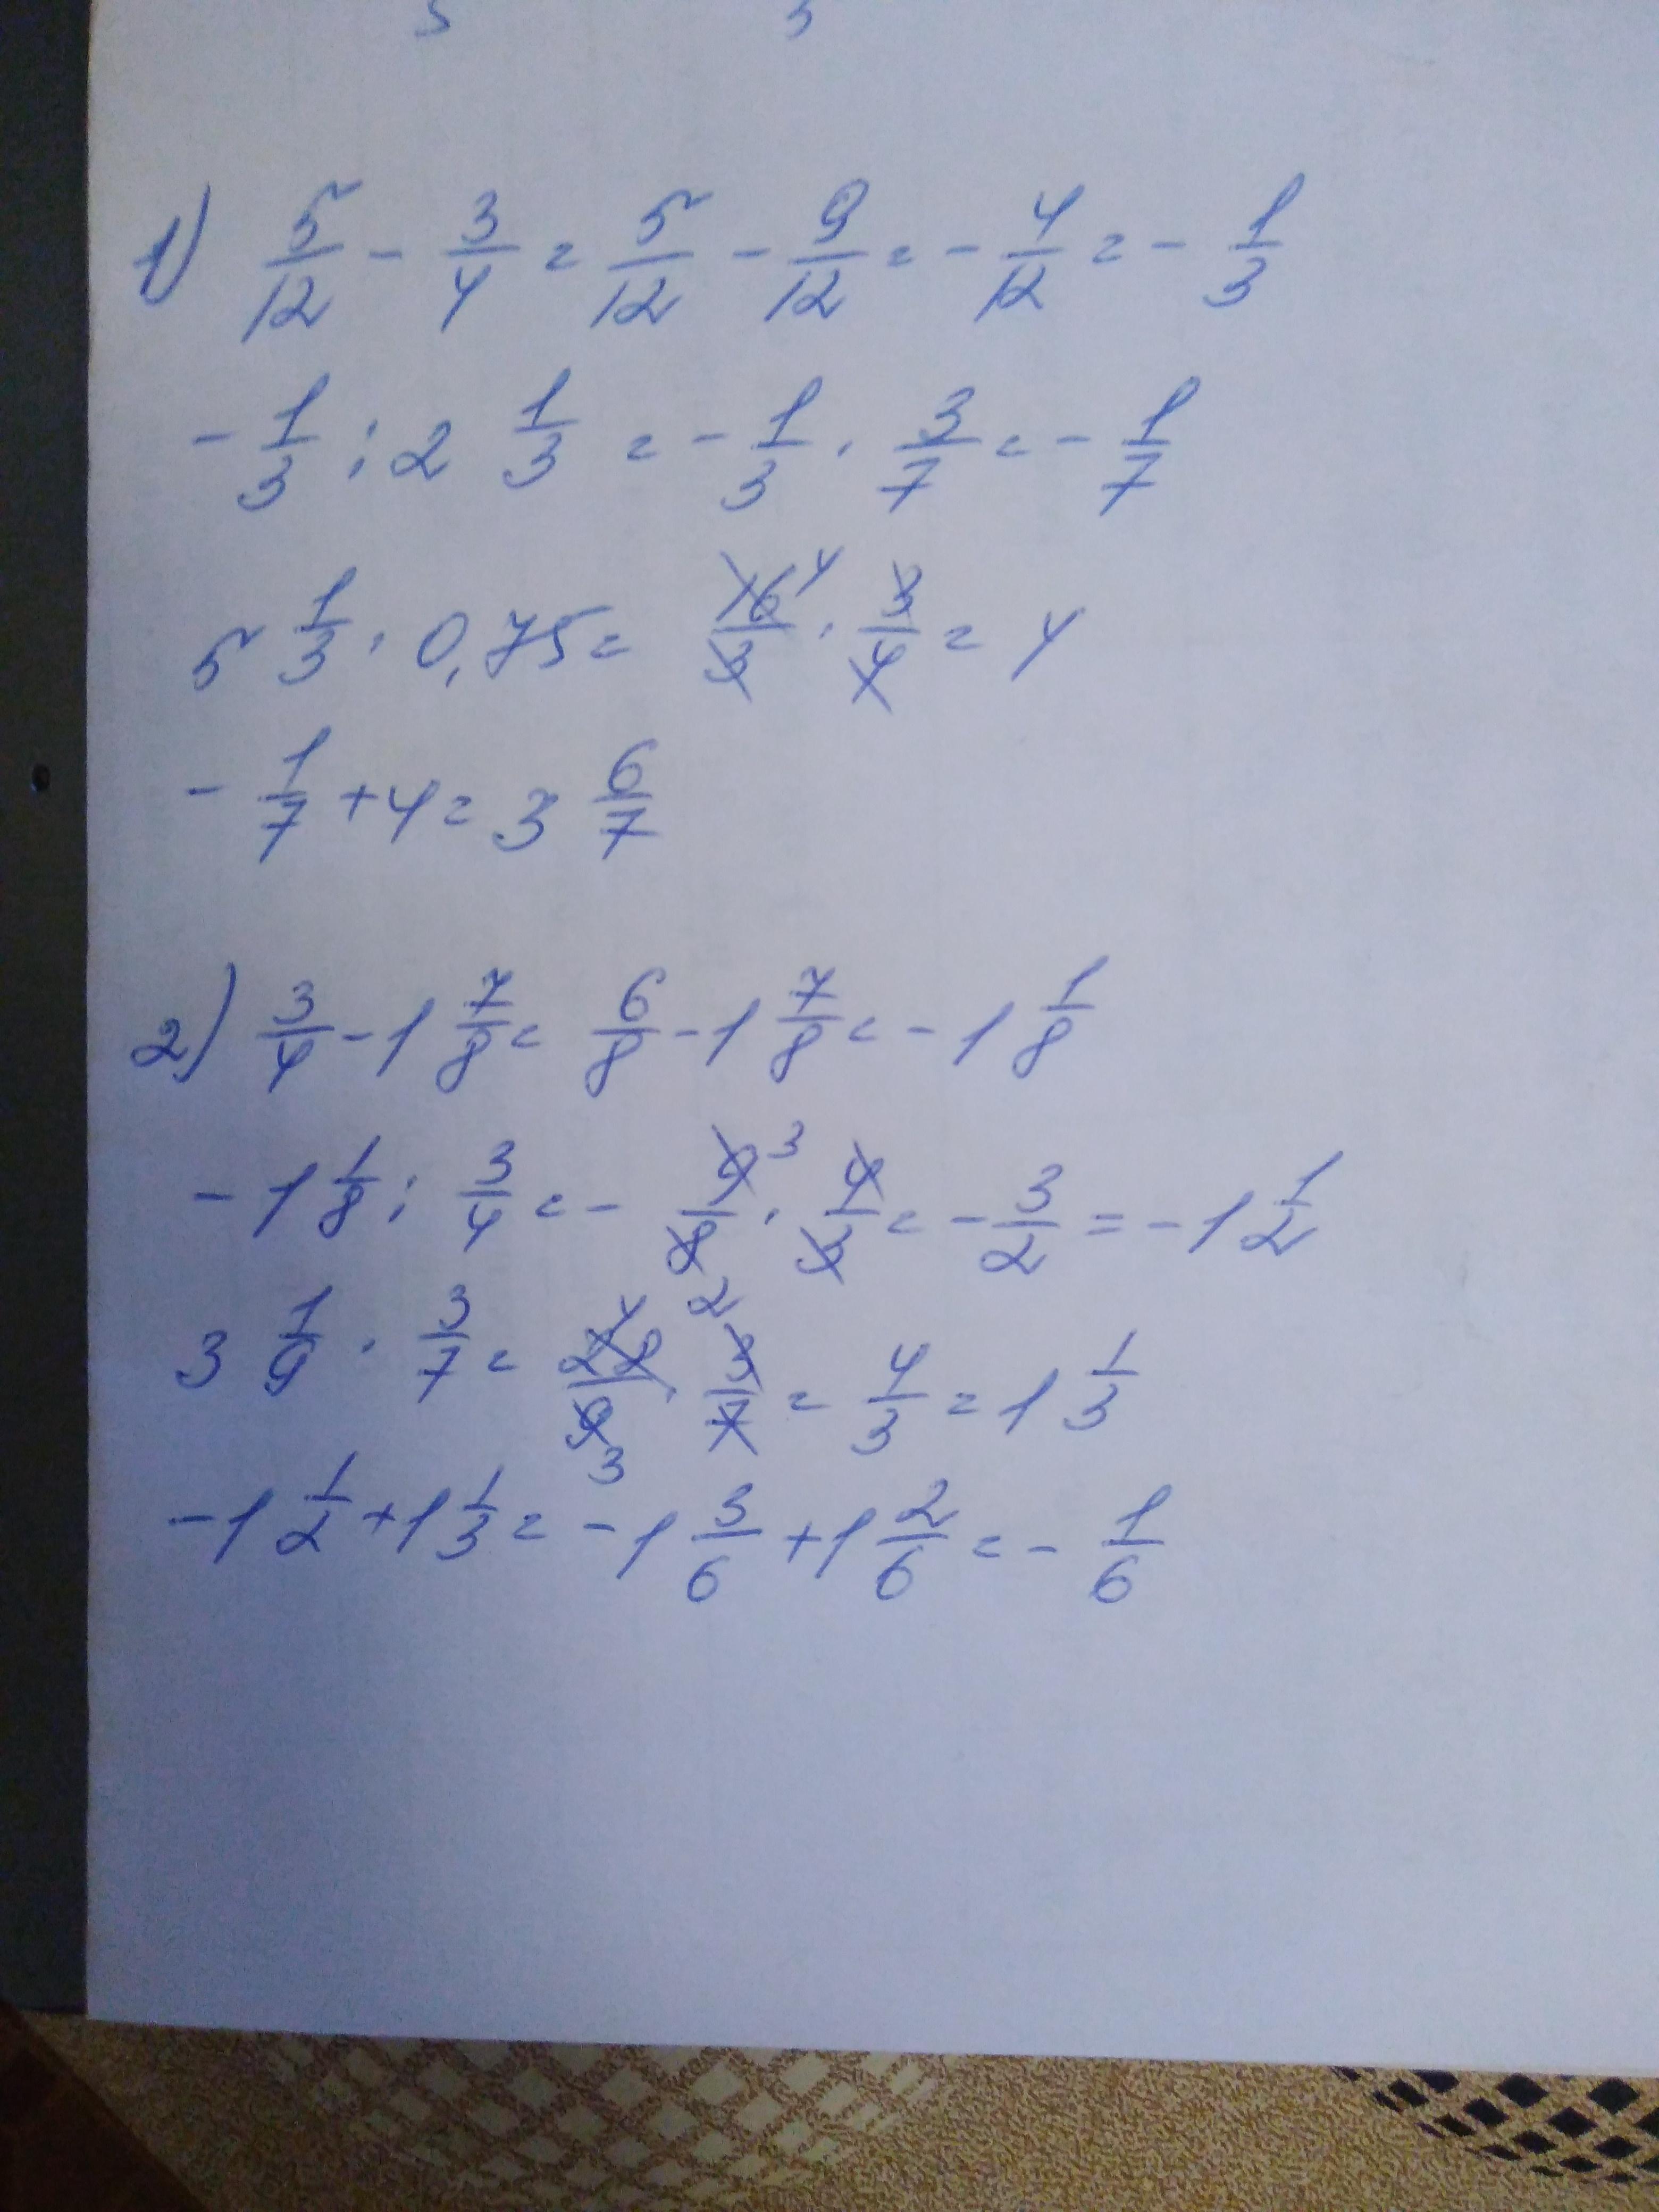 1) 5/12 - 3/4 = 5/12 - 9/12 = - 4/12 = - 1/3
- 1/3 : 2 1/3 = - 1/3 · 3/7 = - 1/7
5 1/3 · 0,75 = 16/3 4 · 3/4 = 4
- 1/7 + 4 = 3 6/7
2) 3/4 - 1 7/8 = 6/8 - 1 7/8 = - 1 1/8
- 1 1/8 : 3/4 = - 9/8 3 2 · 4/3 = - 3/2 = - 1 1/2
3 1/9 · 3/7 = 28/9 4 3 · 3/7 = 4/3 = 1 1/3
- 1 1/2 + 1 1/3 = - 1 3/6 + 1 2/6 = - 1/6